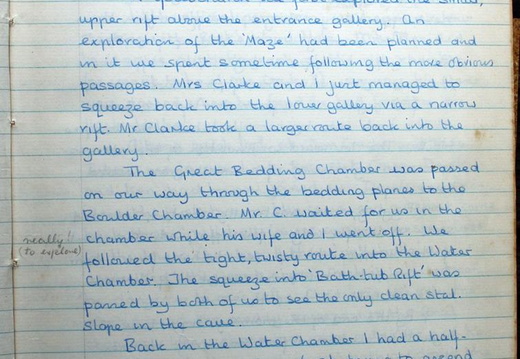 first explored the small,
upper rift above the entrance gallery. An
exploration of the 'Maze' had been planned and
in it we spent sometime following the more obvious
passages. Mrs Clarke and I just managed to
squeeze back into the lower gallery via a narrow
rift. Mr Clarke took a larger route back into the
gallery.
The Great Bedding Chamber was passed
on our way through the bedding planes to the
Boulder Chamber. Mr. C. waited for us in the
chamber while his wife and I went off. We
really!
(to explore)
followed the tight, twisty route into the Water
Chamber. The squeeze into 'Bath-tub Rift' was
passed by both of us to see the only clean stal.
slope in the cave.
Back in the Water Chamber I had a half-